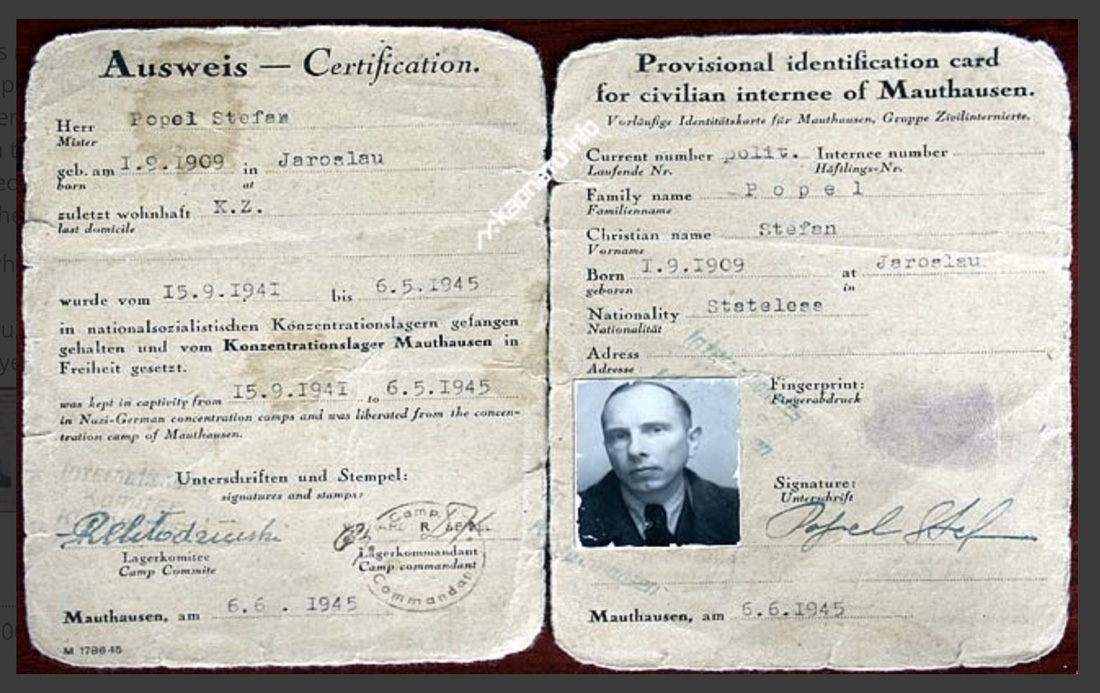 Ausweis — Certification.
Herr Popel Stefan
Mister
geb. am I.9.I909 in Jaroslau
born at
zuletzt wohnhaft K.Z.
last domicile
wurde vom I5.9.I94I bis 6.5.I945
in nationalsozialistischen Konzentrationslagern gefangen
gehalten und vom Konzentrationslager Mauthausen in
Freiheit gesetzt.
was kept in captivity from I5.9.I94I to 6.5.I945
in Nazi-German concentration camps and was liberated from the concen-
tration camp of Mauthausen.
Unterschriften und Stempel:
signatures and stamps:
Camp
Commandant
Lagerkomitee
Camp Commite
Lagerkommandant
Camp commandant
Mauthausen, am 6.6. I945
M 1786 45
Provisional identification card
for civilian internee of Mauthausen.
Vorläufige Identitätskarte für Mauthausen, Gruppe Zivilinternierte.
Current number polit. Internee number
Laufende Nr. Häftlings-Nr.
Family name Popel
Familienname
Christian name Stefan
Vorname
Born I.9.I909 at Jaroslau
geboren in
Nationality Stateless
Nationalität
Adress
Adresse
Fingerprint:
Fingerabdruck
Signature:
Unterschrift
Popel Stef
Mauthausen, am 6.6.I945